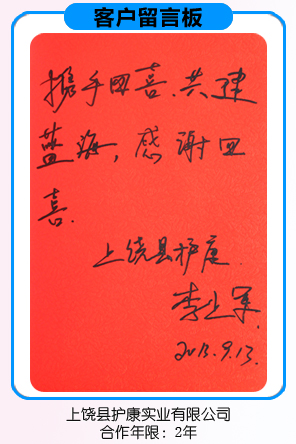 客户留言板
携手四喜.共建
蓝海,感谢四
喜.
上饶县护康.
李上军.
2013.9.13.
上饶县护康实业有限公司
合作年限:2年